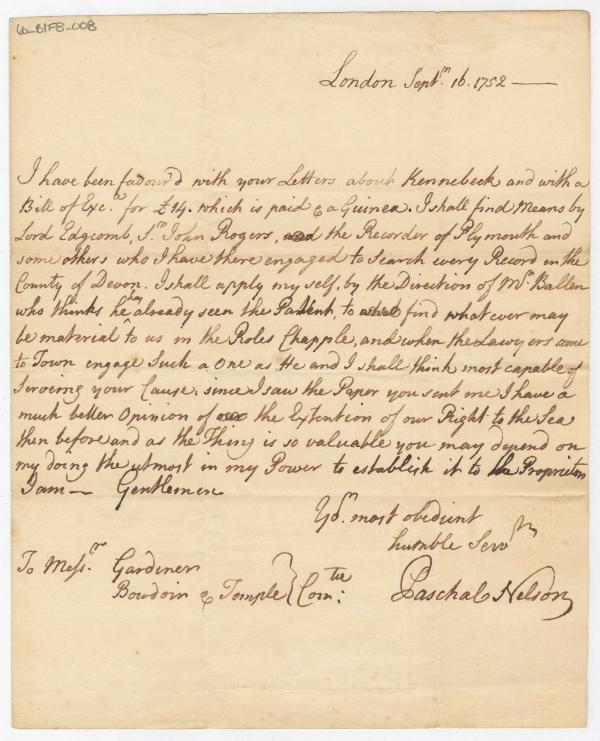 LO_B1F8_008
London Septm 16. 1752
I have been favour'd with your Letters about Kennebeck and with a
Bill of Exc.a for £14. which is paid & a Guinea. I shall find Means by
Lord Edgcomb, S.r John Rogers, and the Recorder of Plymouth and
some others who I have there engaged to search every Record in the
County of Devon. I shall apply my self, by the Direction of Mr Ballen
who thinks he has already seen the Pattent, to find what ever may
be material to us in the Roles Chapple, and when the Lawyers come
to Town engage Such a One as He and I shall think most capable of
Serveing your Cause: since I saw the Paper you sent me I have a
much better Opinion of the Extention of our Right to the Sea
then before and as the Thing is so valuable you may depend on
my doing the utmost in my Power to establish it to the Proprietors
I am — Gentlemen
Yor. most obedient
humble Servts
To Messrs. Gardiner
Bowdoin & Temple } Comtee:
Paschal Nelson